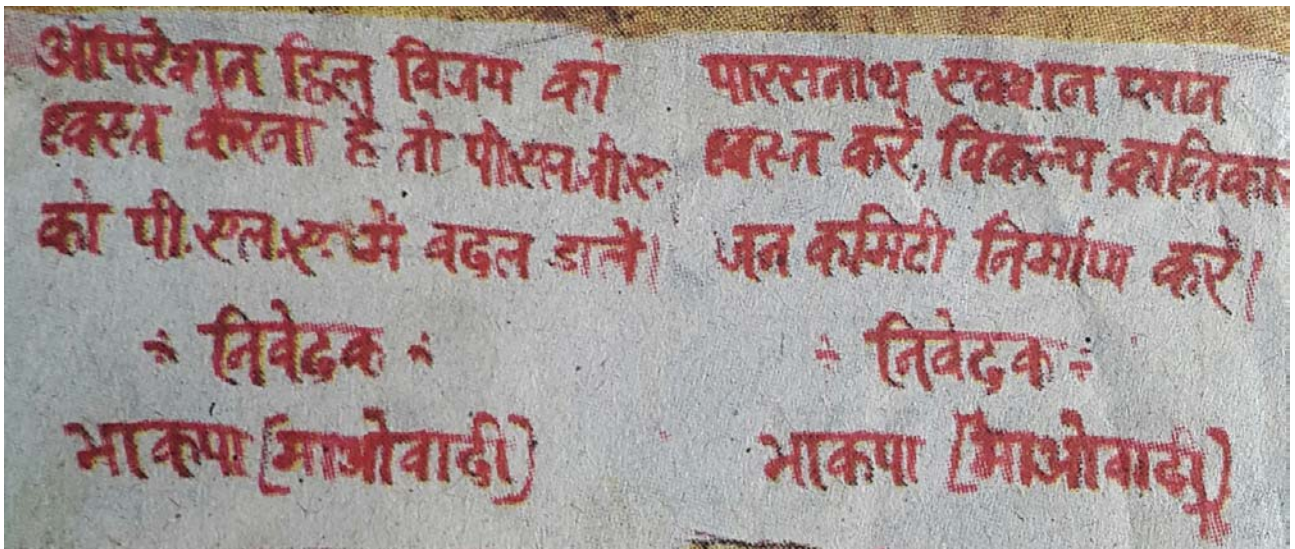 ऑपरेशन हिल विजय को
ध्वस्त करना है तो पी.एल.जी.ए.
को पी.एल.ए. में बदल डालें।
÷ निवेदक ÷
भाकपा (माओवादी)
पारसनाथ एक्शन प्लान
ध्वस्त करें, विकल्प क्रान्तिका
जन कमिटी निर्माण करें।
÷ निवेदक ÷
भाकपा (माओवादी)